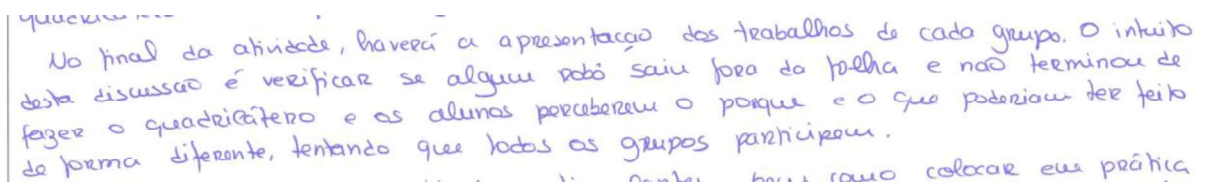 No final da atividade, haverá a apresentação dos trabalhos de cada grupo. O intuito
desta discussão é verificar se algum robô saiu fora da folha e não terminou de
fazer o quadrilátero e os alunos perceberem o porque e o que poderiam ter feito
de forma diferente, tentando que todos os grupos participem.
bem como colocar em prática